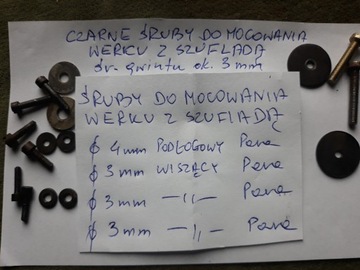 CZARNE ŚRUBY DO MOCOWANIA
WERKU Z SZUFLADĄ
śr. gwintu ok. 3 mm
ŚRUBY DO MOCOWANIA
WERKU Z SZUFLADĄ
ϕ 4 mm PODŁOGOWY Para
ϕ 3 mm WISZĄCY Para
ϕ 3 mm —„— Para
ϕ 3 mm —„— Para